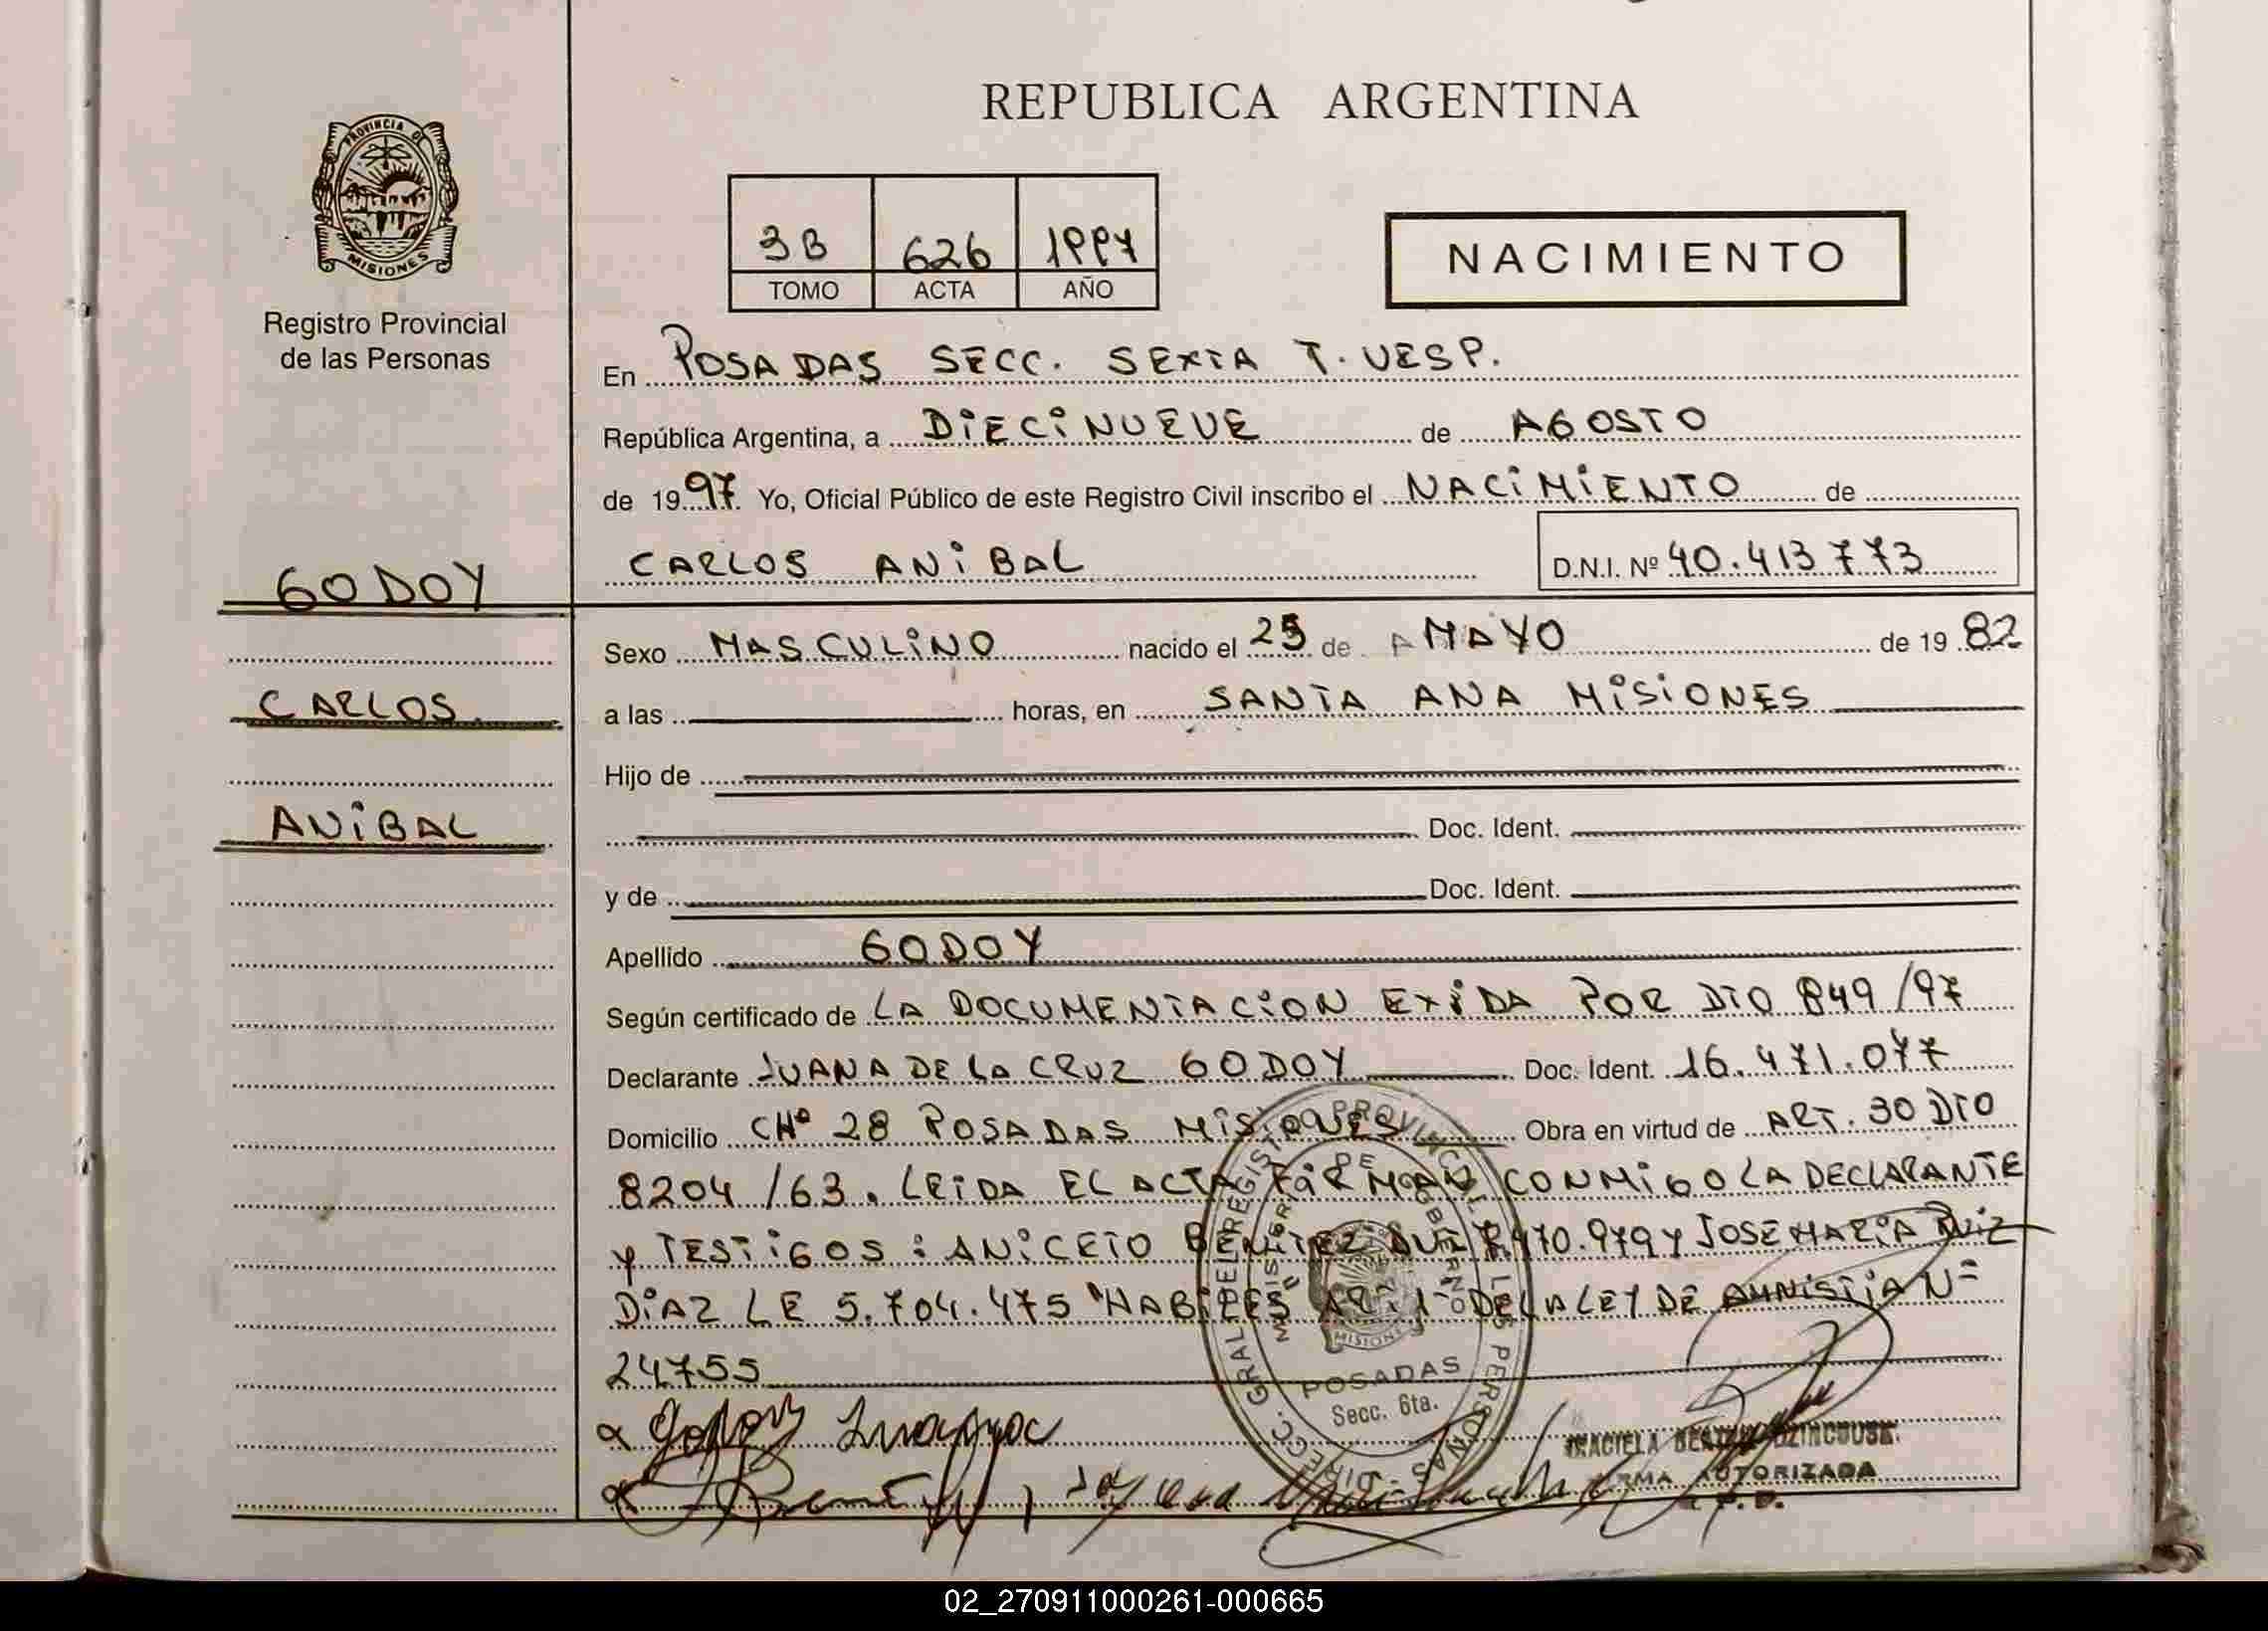 REPUBLICA ARGENTINA
PROVINCIA DE
MISIONES
Registro Provincial
de las Personas
3B 626 1997
TOMO ACTA AÑO
NACIMIENTO
En POSADAS SECC. SEXTA T. VESP.
República Argentina, a DIECINUEVE de AGOSTO
de 1997. Yo, Oficial Público de este Registro Civil inscribo el NACIMIENTO de
CARLOS ANIBAL D.N.I. Nº 40.413773
GODOY
CARLOS
ANIBAL
Sexo MASCULINO nacido el 25 de MAYO de 1982
a las horas, en SANTA ANA MISIONES
Hijo de
Doc. Ident.
y de Doc. Ident.
Apellido GODOY
Según certificado de LA DOCUMENTACION EXIDA POR DTO 849/97
Declarante JUANA DE LA CRUZ GODOY Doc. Ident. 16.471.077
Domicilio CHª 28 POSADAS MISIONES Obra en virtud de ART. 30 DTO
8204/63. LEIDA EL ACTA FIRMAN CONMIGO LA DECLARANTE
y TESTIGOS: ANICETO BENITEZ 470.979 y JOSE MARIA RUIZ
DIAZ LE 5.704.475 "HABILES ART. 1º DE LA LEY DE AMNISTIA Nº
24755
Godoy
DIRECC. GRAL DEL REGISTRO PROVINCIAL DE LAS PERSONAS
MINISTERIO DE GOBIERNO
MISIONES
POSADAS
Secc. 6ta.
FIRMA AUTORIZADA
02_270911000261-000665